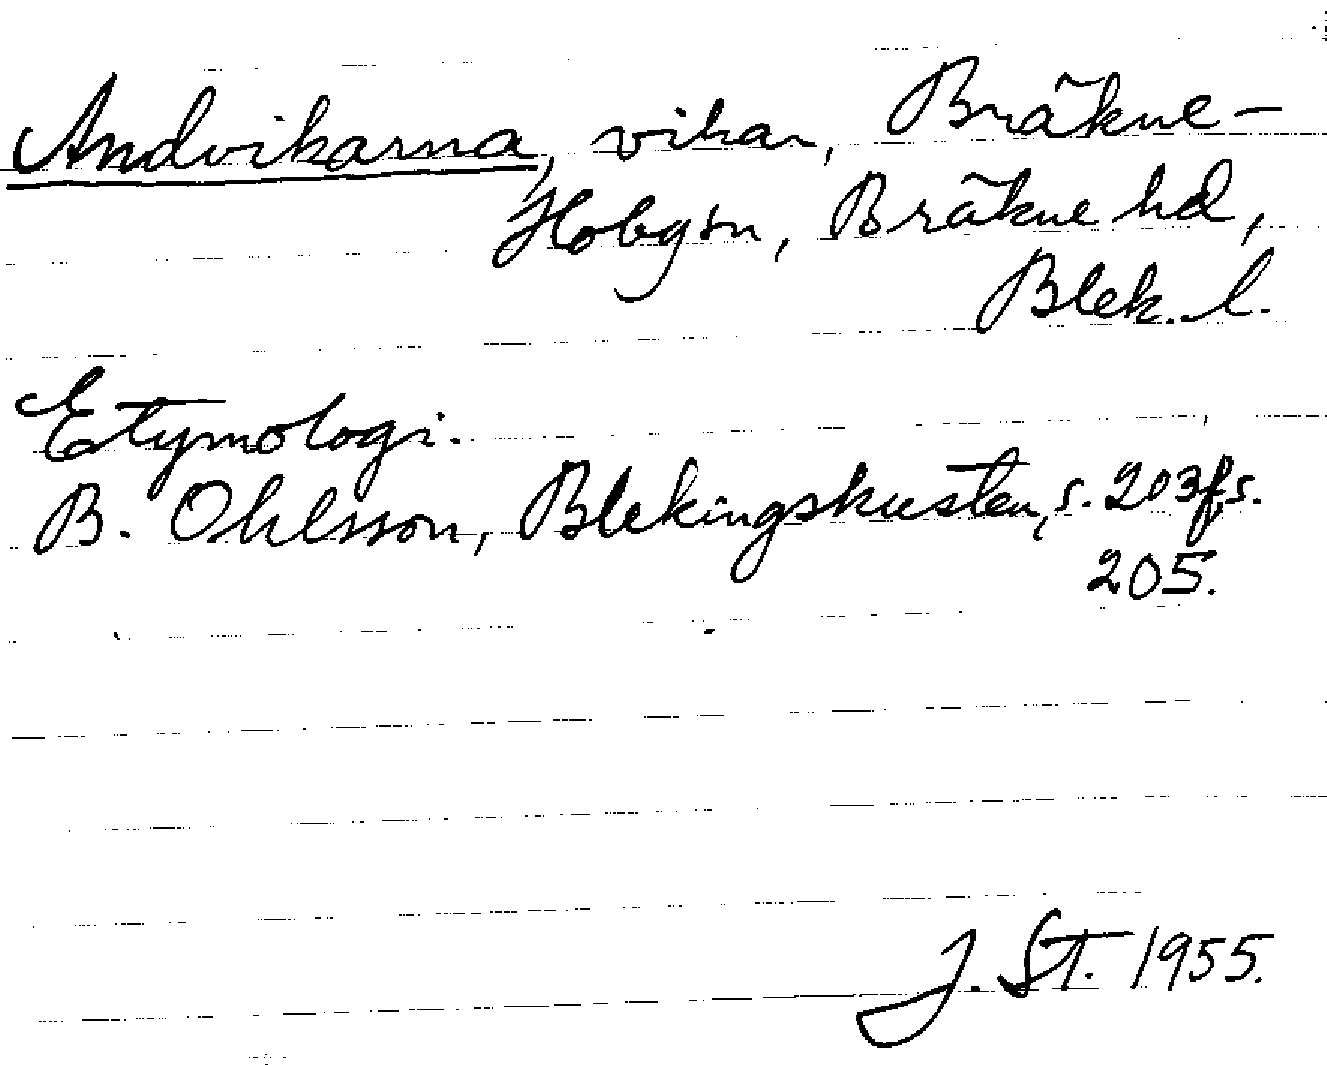 Andvikarna, vikar, Bräkne-
Hobysn, Bräkne hd,
Blek. l.
Etymologi.
B. Ohlsson, Blekingskusten, s. 203f, s.
205.
J. St. 1955.